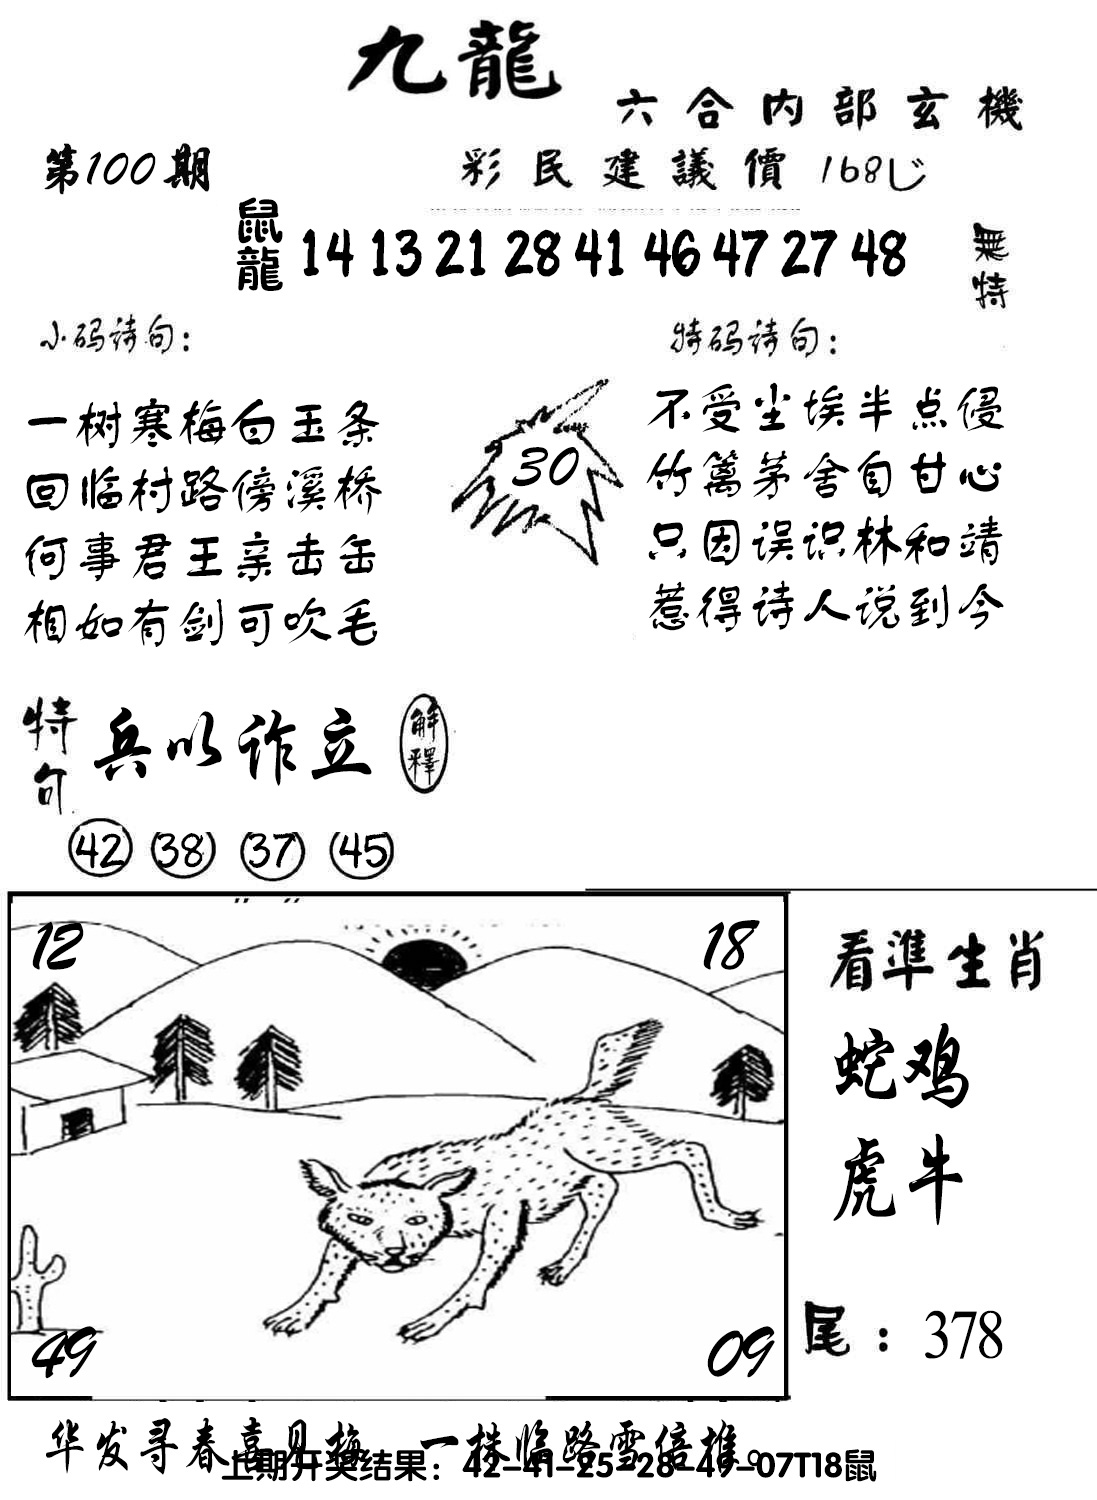 九龍
六合内部玄機
第100期
彩民建議價168じ
鼠龍
14 13 21 28 41 46 47 27 48
無特
小码诗句：
一树寒梅白玉条
回临村路傍溪桥
何事君王亲击缶
相如有剑可吹毛
30
特码诗句：
不受尘埃半点侵
竹篱茅舍自甘心
只因误识林和靖
惹得诗人说到今
特句
兵以诈立
解釋
42 38 37 45
12
18
49
09
看準生肖
蛇鸡
虎牛
尾：378
华发寻春喜见梅 一株临路雪倍堆。
上期开奖结果：42-41-25-28-49-07T18鼠